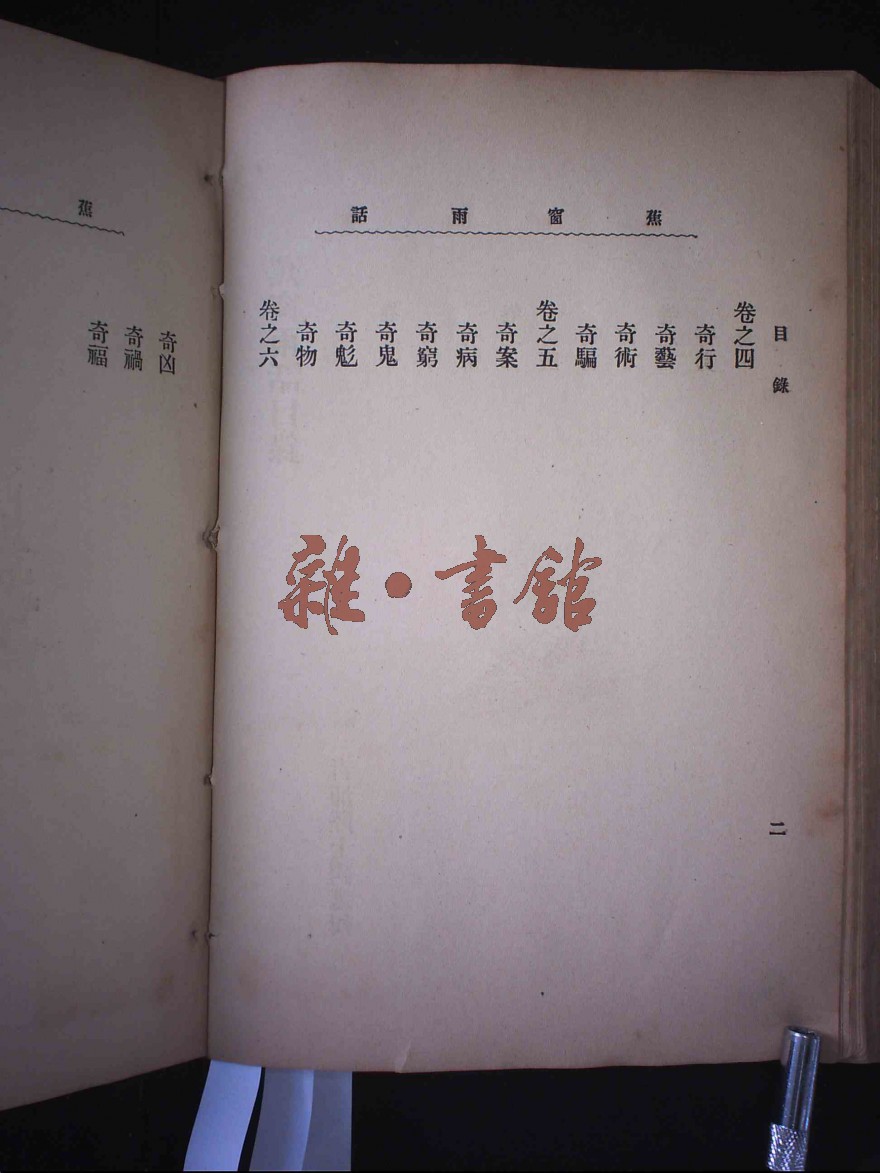 蕉窗雨話
目錄
卷之四
奇行
奇藝
奇術
奇騙
卷之五
奇案
奇病
奇窮
奇鬼
奇鬽
奇物
卷之六
二
蕉
奇凶
奇禍
奇福
雜·書館